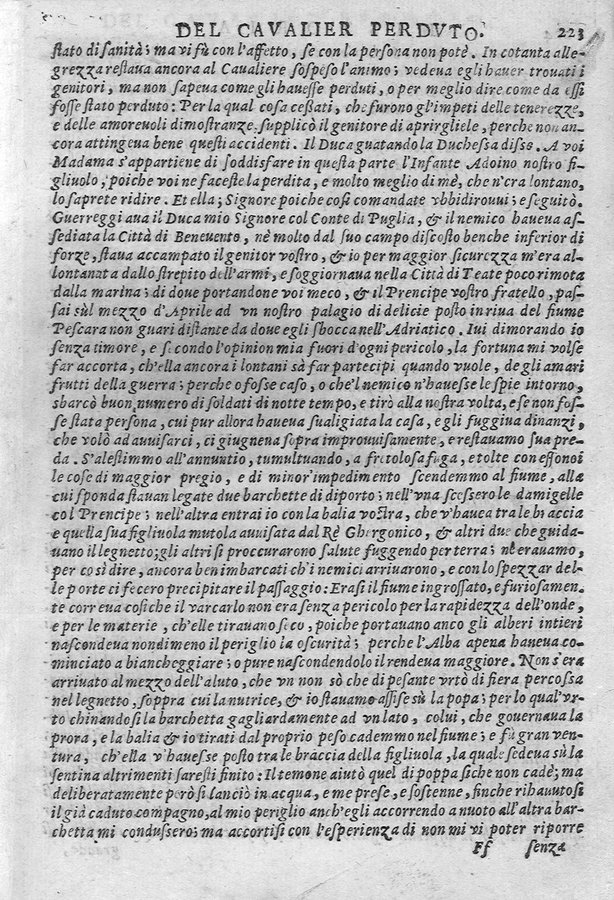 DEL CAVALIER PERDVTO. 223
stato di sanità; ma vi fù con l'affetto, se con la persona non potè. In cotanta alle-
grezza restaua ancora al Caualiere sospeso l'animo; vedeua egli hauer trouati i
genitori, ma non sapeua come gli hauesse perduti, o per meglio dire come da essi
fosse stato perduto: Per la qual cosa ceßati, che furono gl'impeti delle tenerezze,
e delle amoreuoli dimostranze, supplicò il genitore di aprirgliele, perche non an-
cora attingeua bene questi accidenti. Il Duca guatando la Duchessa disse. A voi
Madama s'appartiene di soddisfare in questa parte l'Infante Adoino nostro fi-
gliuolo; poiche voi ne faceste la perdita, e molto meglio di mè, che n'era lontano,
lo saprete ridire. Et ella; Signore poiche così comandate vbbidirouui; e seguitò.
Guerreggiaua il Duca mio Signore col Conte di Puglia, & il nemico haueua as-
sediata la Città di Beneuento, nè molto dal suo campo discosto benche inferior di
forze, staua accampato il genitor vostro, & io per maggior sicurezza m'era al-
lontanata dallo strepito dell'armi, e soggiornaua nella Città di Teate poco rimota
dalla marina; di doue portandone voi meco, & il Prencipe vostro fratello, pas-
sai sùl mezzo d'Aprile ad vn nostro palagio di delicie posto in riua del fiume
Pescara non guari distante da doue egli sbocca nell'Adriatico. Iui dimorando io
senza timore, e secondo l'opinion mia fuori d'ogni pericolo, la fortuna mi volse
far accorta, ch'ella ancora i lontani sà far partecipi quando vuole, de gli amari
frutti della guerra; perche o fosse caso, o che'l nemico n'hauesse le spie intorno,
sbarcò buon numero di soldati di notte tempo, e tirò alla nostra volta, e se non fos-
se stata persona, cui pur allora haueua sualigiata la casa, e gli fuggiua dinanzi,
che volò ad auuisarci, ci giugneua sopra improuuisamente, e restauamo sua pre-
da. S'alestimmo all'annuntio, tumultuando, a frettolosa fuga, e tolte con esso noi
le cose di maggior pregio, e di minor'impedimento scendemmo al fiume, alla
cui sponda stauan legate due barchette di diporto; nell'vna scessero le damigelle
col Prencipe; nell'altra entrai io con la balia vostra, che v'haueа tra le braccia
e quella sua figliuola mutola auuisata dal Rè Ghergonico, & altri due che guida-
uano il legnetto; gli altri si proccurarono salute fuggendo per terra; nè erauamo,
per così dire, ancora ben imbarcati ch'i nemici arriuarono, e con lo spezzar del-
le porte ci fecero precipitare il passaggio: Erasi il fiume ingrossato, e furiosamen-
te correua cosiche il varcarlo non era senza pericolo per la rapidezza dell'onde,
e per le materie, ch'elle tirauano seco, poiche portauano anco gli alberi intieri
nascondeua nondimeno il periglio la oscurità; perche l'Alba apena haueua co-
minciato a biancheggiare; o pure nascondendolo il rendeua maggiore. Non s'era
arriuato al mezzo dell'aluto, che vn non sò che di pesante vrtò di fiera percossa
nel legnetto, soppra cui la nutrice, & io stauamo assise sù la popa; per lo qual'vr-
to chinandosi la barchetta gagliardamente ad vn lato, colui, che gouernaua la
prora, e la balia & io tirati dal proprio peso cademmo nel fiume; e fù gran ven-
tura, ch'ella v'hauesse posto tra le braccia della figliuola, la quale sedeua sù la
sentina altrimenti saresti finito: Il temone aiutò quel di poppa siche non cadè; ma
deliberatamente però si lanciò in acqua, e me prese, e sostenne, finche rihauutosi
il già caduto compagno, al mio periglio anch'egli accorrendo a nuoto all'altra bar-
chetta mi condussero; ma accortisi con l'esperienza di non mi vi poter riporre
Ff senza